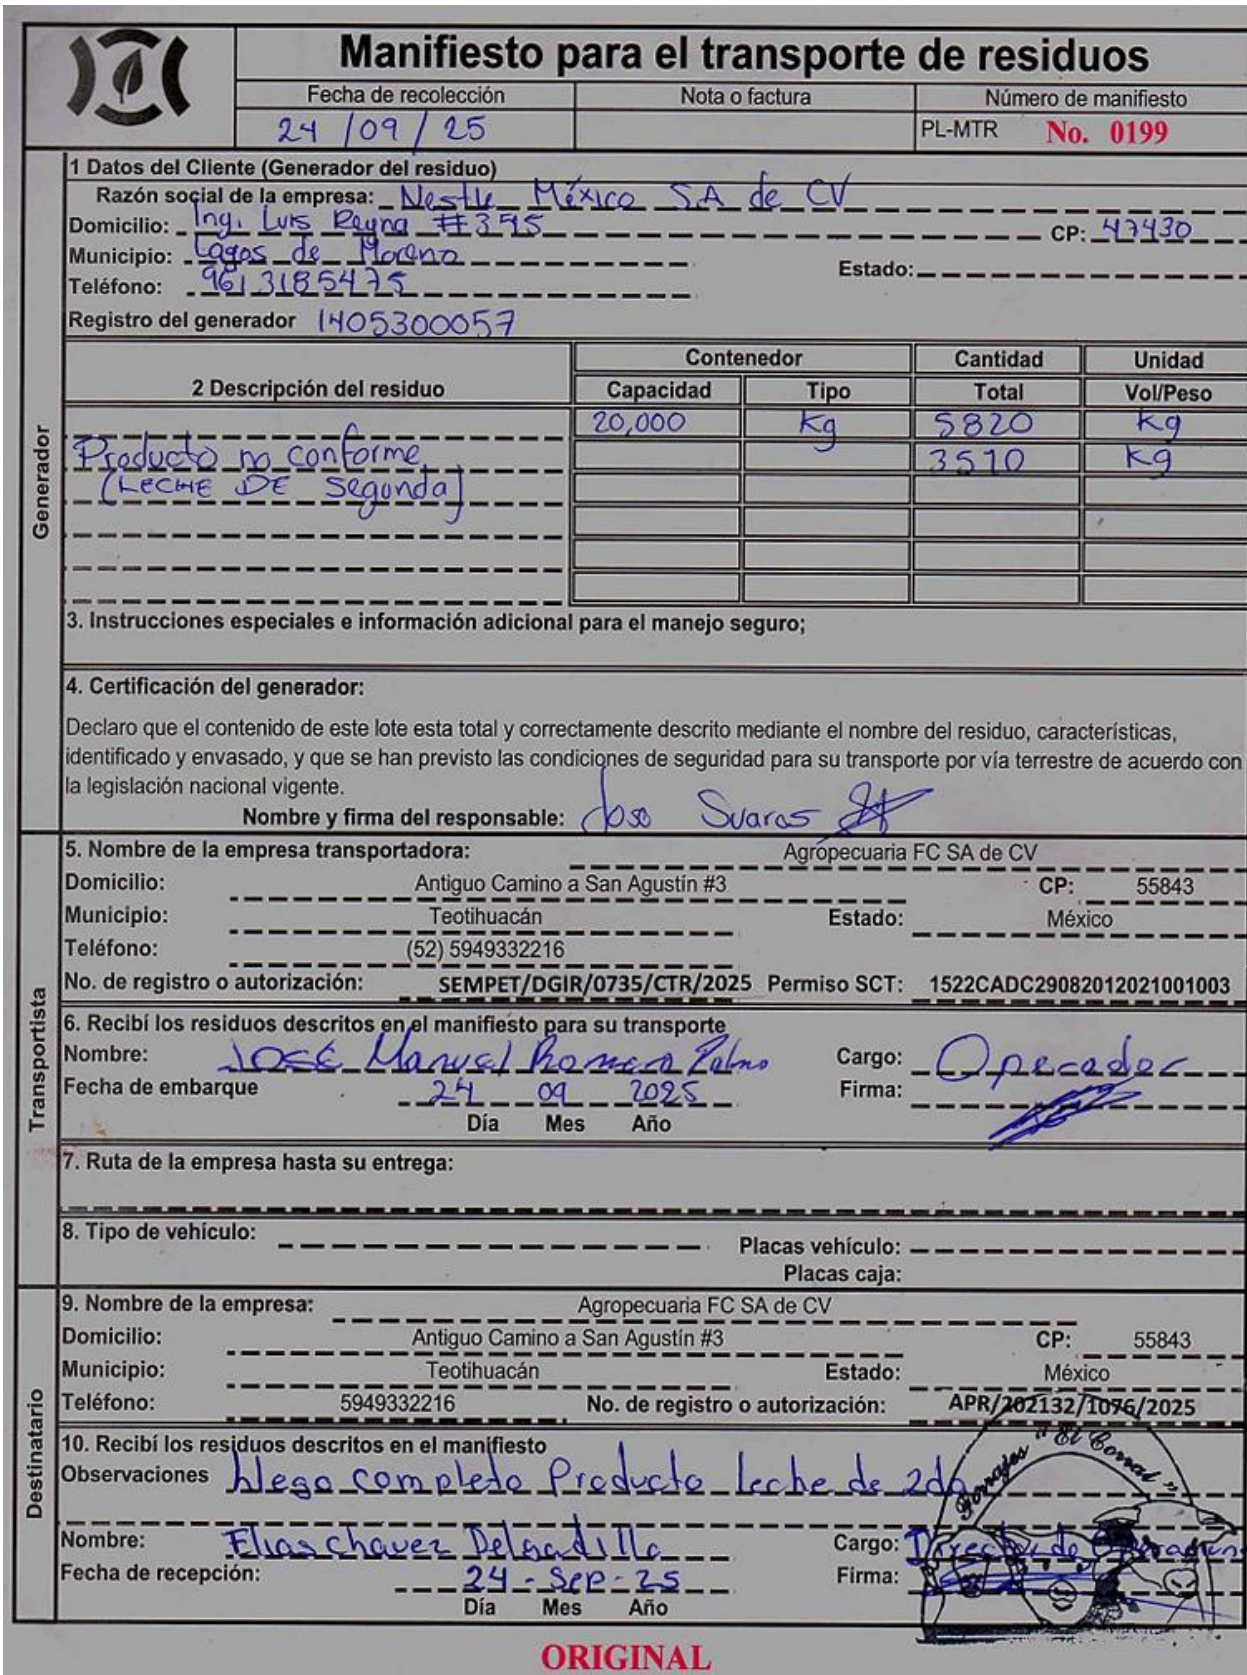 Manifiesto para el transporte de residuos
Fecha de recolección Nota o factura Número de manifiesto
24 / 09 / 25 PL-MTR No. 0199
1 Datos del Cliente (Generador del residuo)
Razón social de la empresa: Nestle México S.A de CV
Domicilio: Ing. Luis Reyna #395 CP: 47430
Municipio: Lagos de Moreno Estado:
Teléfono: 961 3185475
Registro del generador 1405300057
Contenedor Cantidad Unidad
2 Descripción del residuo Capacidad Tipo Total Vol/Peso
20,000 Kg 5820 Kg
Producto no conforme 3510 Kg
(LECHE DE segunda)
Generador
3. Instrucciones especiales e información adicional para el manejo seguro;
4. Certificación del generador:
Declaro que el contenido de este lote esta total y correctamente descrito mediante el nombre del residuo, características,
identificado y envasado, y que se han previsto las condiciones de seguridad para su transporte por vía terrestre de acuerdo con
la legislación nacional vigente.
Nombre y firma del responsable: Jose Suares
5. Nombre de la empresa transportadora: Agropecuaria FC SA de CV
Domicilio: Antiguo Camino a San Agustín #3 CP: 55843
Municipio: Teotihuacán Estado: México
Teléfono: (52) 5949332216
No. de registro o autorización: SEMPET/DGIR/0735/CTR/2025 Permiso SCT: 1522CADC29082012021001003
Transportista
6. Recibí los residuos descritos en el manifiesto para su transporte
Nombre: José Manuel Romero Cargo: Operador
Fecha de embarque 24 09 2025 Firma:
Día Mes Año
7. Ruta de la empresa hasta su entrega:
8. Tipo de vehículo: Placas vehículo:
Placas caja:
9. Nombre de la empresa: Agropecuaria FC SA de CV
Domicilio: Antiguo Camino a San Agustín #3 CP: 55843
Municipio: Teotihuacán Estado: México
Teléfono: 5949332216 No. de registro o autorización: APR/202132/1076/2025
Destinatario
10. Recibí los residuos descritos en el manifiesto
Forrajes "El Corral"
Observaciones llego completo Producto leche de 2da
Nombre: Elias chavez Delgadillo Cargo: Director de
Fecha de recepción: 24 - Sep - 25 Firma:
Día Mes Año
ORIGINAL